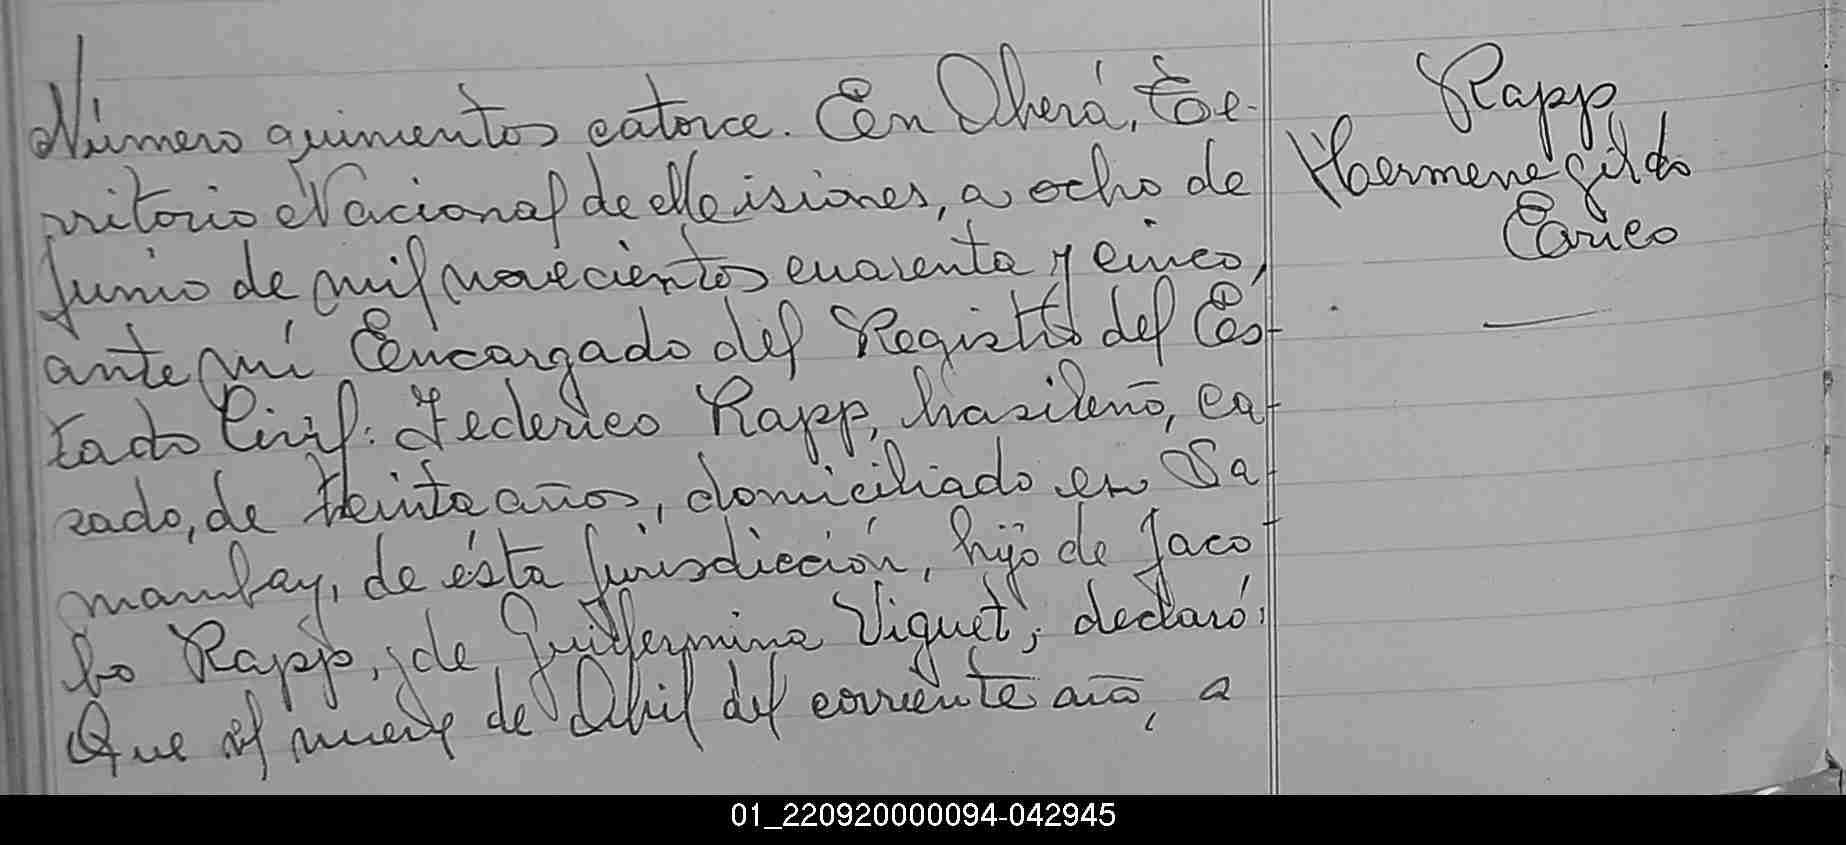 Número quinientos catorce. En Oberá, Te-
rritorio Nacional de Misiones, a ocho de
Junio de mil novecientos cuarenta y cinco,
ante mí Encargado del Registro del Es-
tado Civil: Federico Rapp, brasileño, ca-
sado, de treinta años, domiciliado en Sa-
mambay, de ésta jurisdicción, hijo de Jaco-
bo Rapp, y de Guillermina Viguet; declaró:
Que el nueve de Abril del corriente año, a
Rapp
Hermenegildo
Enrico
01_220920000094-042945